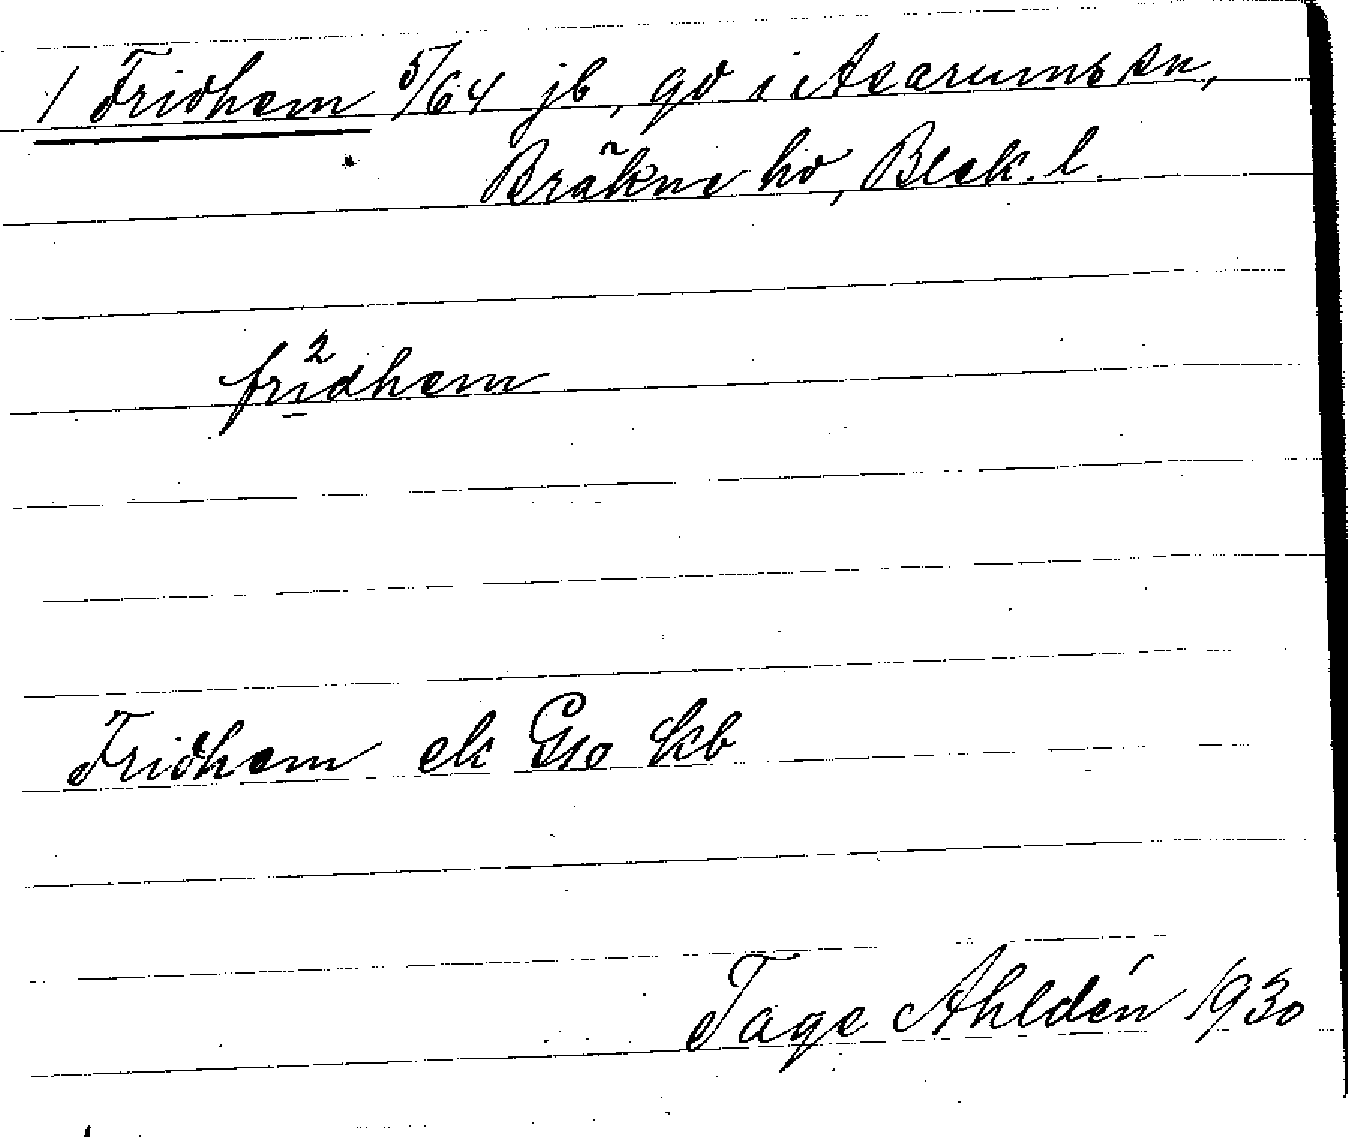 1 Fridhem 5/64 jb, gd i Asarums sn,
Bräkne hd, Blek. l.
fri²dhem
Fridhem ek Gso kb
Tage Ahldén 1930